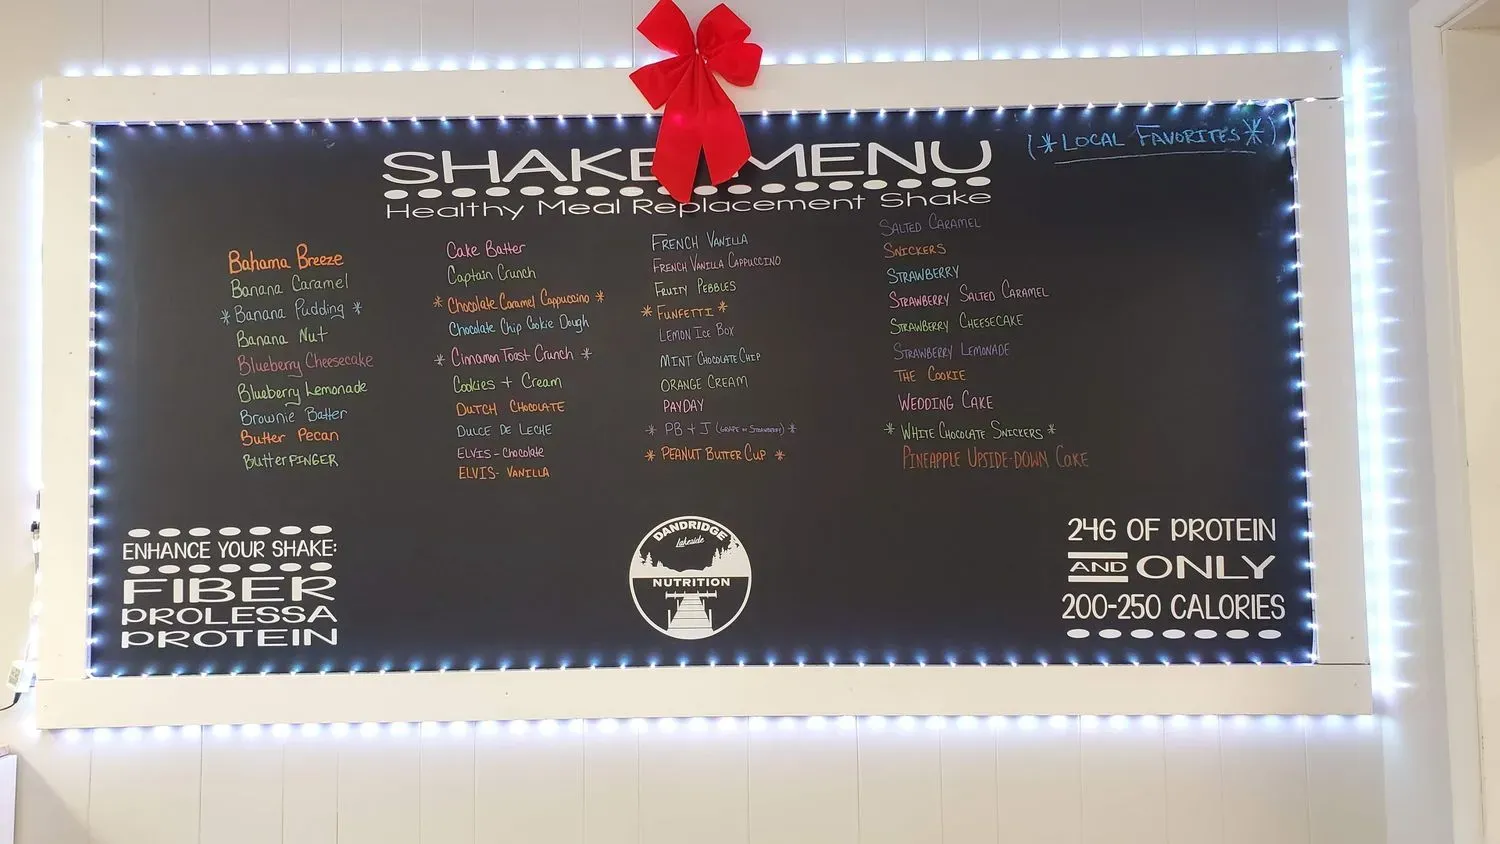 (*LOCAL FAVORITES*)
SHAKE MENU
Healthy Meal Replacement Shake
Bahama Breeze
Banana Caramel
*Banana Pudding*
Banana Nut
Blueberry Cheesecake
Blueberry Lemonade
Brownie Batter
Butter Pecan
ButterFINGER
Cake Batter
Captain Crunch
*Chocolate Caramel Cappuccino*
Chocolate Chip Cookie Dough
*Cinnamon Toast Crunch*
Cookies + Cream
DUTCH CHOCOLATE
DULCE DE LECHE
ELVIS - Chocolate
ELVIS - VANILLA
FRENCH VANILLA
FRENCH VANILLA CAPPUCCINO
FRUITY PEBBLES
*FUNFETTI*
LEMON ICE BOX
MINT CHOCOLATE CHIP
ORANGE CREAM
PAYDAY
*PB + J (GRAPE or STRAWBERRY)*
*PEANUT BUTTER CUP*
SALTED CARAMEL
SNICKERS
STRAWBERRY
STRAWBERRY SALTED CARAMEL
STRAWBERRY CHEESECAKE
STRAWBERRY LEMONADE
THE COOKIE
WEDDING CAKE
*WHITE CHOCOLATE SNICKERS*
PINEAPPLE UPSIDE-DOWN CAKE
ENHANCE YOUR SHAKE:
FIBER
PROLESSA
PROTEIN
DANDRIDGE
Lakeside
NUTRITION
24G OF PROTEIN
AND ONLY
200-250 CALORIES